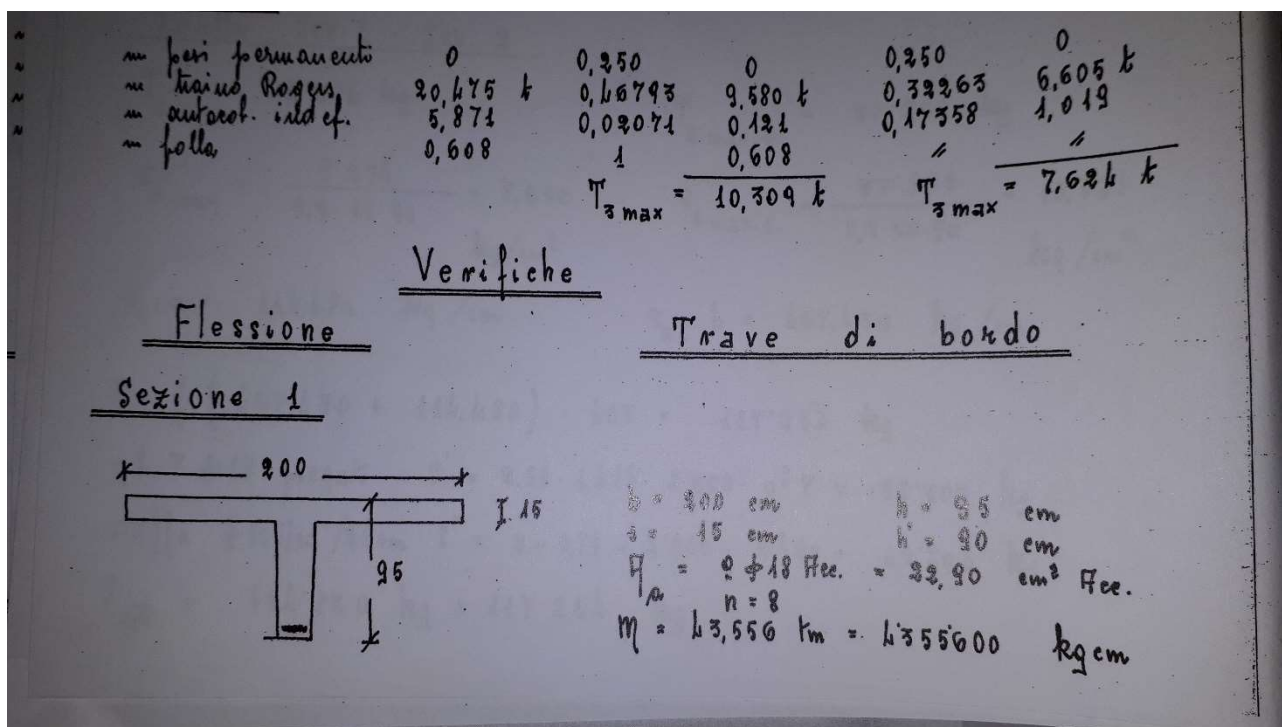 " pesi permanenti 0 0,250 0 0,250 0
" traino Rogers 20,475 t 0,46793 9,580 t 0,32263 6,605 t
" autocol. indef. 5,871 0,02071 0,121 0,17358 1,019
" folla 0,608 1 0,608 " "
T3 max = 10,309 t T3 max = 7,624 t
Verifiche
Flessione Trave di bordo
Sezione 1
200
I 15
95
b = 200 cm h = 95 cm
s = 15 cm h' = 90 cm
A = 9 ϕ 18 Acc. = 22,90 cm² Acc.
n = 8
M = 43,556 tm = 4355600 kgcm